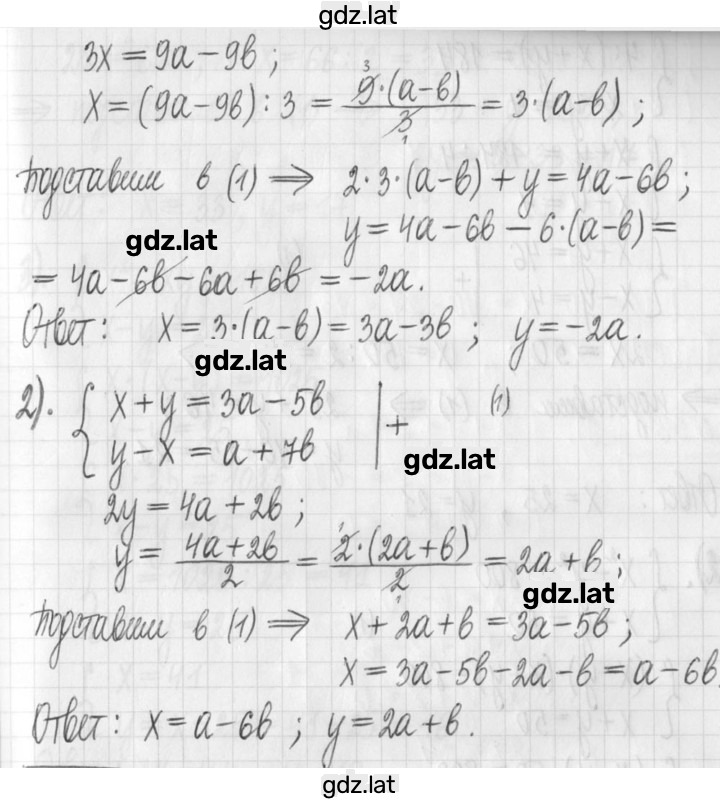 gdz.lat
3x = 9a − 9b ;
x = (9a − 9b) : 3 = 9·(a − b) / 3 = 3·(a − b) ;
3
1
Подставим в (1) ⟹ 2·3·(a − b) + y = 4a − 6b ;
y = 4a − 6b − 6·(a − b) =
gdz.lat
= 4a − 6b − 6a + 6b = −2a.
Ответ: x = 3·(a − b) = 3a − 3b ; y = −2a.
gdz.lat
2). { x + y = 3a − 5b | + (1)
y − x = a + 7b
gdz.lat
2y = 4a + 2b ;
y = (4a + 2b) / 2 = 2·(2a + b) / 2 = 2a + b ;
1
1
gdz.lat
Подставим в (1) ⟹ x + 2a + b = 3a − 5b ;
x = 3a − 5b − 2a − b = a − 6b.
Ответ: x = a − 6b ; y = 2a + b.
gdz.lat